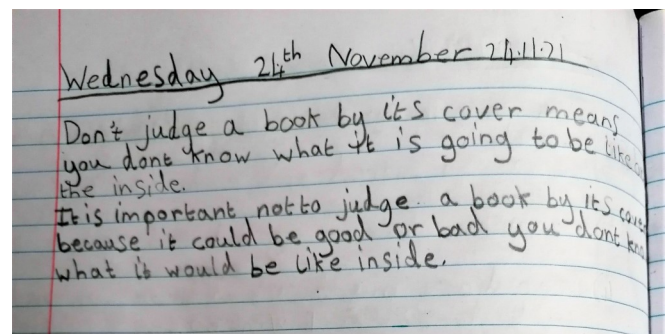 Wednesday 24th November 24.11.21
Don't judge a book by its cover means
you dont know what it is going to be like on
the inside.
It is important not to judge a book by its cover
because it could be good or bad you dont know
what it would be like inside.